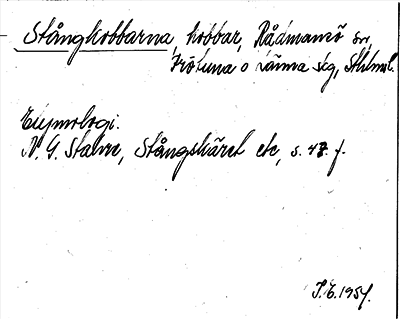 Stångkobbarna, kobbar, Rådmansö sn,
Frötuna o Länna slg, Sthlms l.
Etymologi.
N. G. Stahre, Stångskäret etc, s. 47 f.
S.E. 1954.